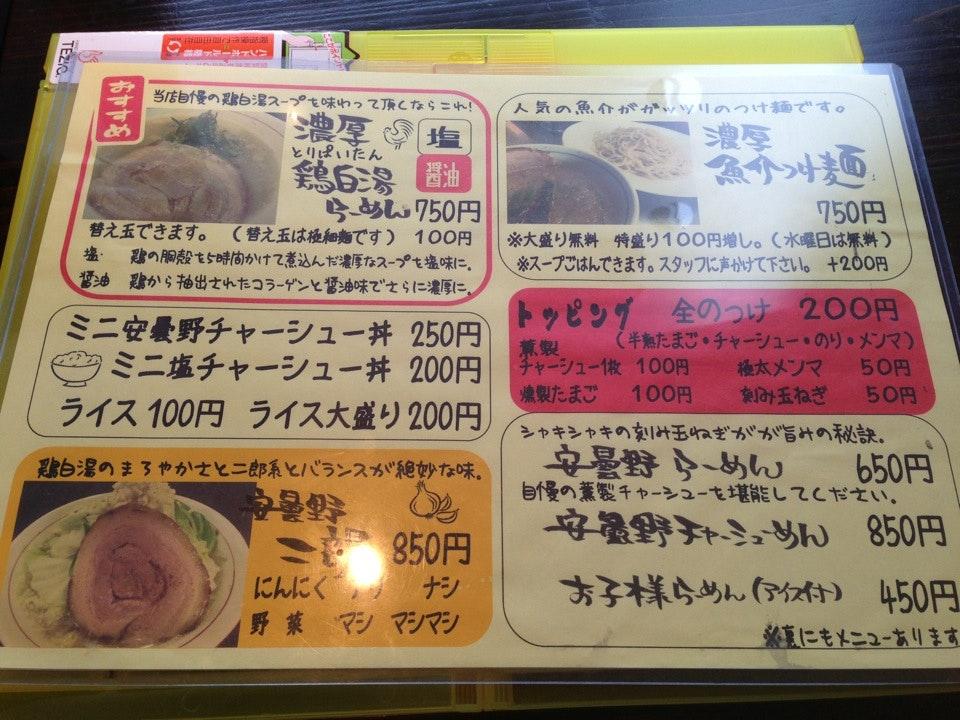 おすすめ
当店自慢の鶏白湯スープを味わって頂くならこれ!
濃厚
とりぱいたん
鶏白湯
らーめん 750円
塩
醤油
替え玉できます。(替え玉は極細麺です) 100円
塩 鶏の胴殻を5時間かけて煮込んだ濃厚なスープを塩味に。
醤油 鶏から抽出されたコラーゲンと醤油味でさらに濃厚に。
ミニ安曇野チャーシュー丼 250円
ミニ塩チャーシュー丼 200円
ライス 100円 ライス大盛り 200円
鶏白湯のまろやかさと二郎系とバランスが絶妙な味。
安曇野
850円
にんにく ナシ
野菜 マシ マシマシ
人気の魚介ががッツリのつけ麺です。
濃厚
魚介つけ麺
750円
※大盛り無料 特盛り100円増し。(水曜日は無料)
※スープごはんできます。スタッフに声かけて下さい。 +200円
トッピング 全のつけ 200円
(半熟たまご・チャーシュー・のり・メンマ)
薫製
チャーシュー1枚 100円 極太メンマ 50円
燻製たまご 100円 刻み玉ねぎ 50円
シャキシャキの刻み玉ねぎがが旨みの秘訣。
安曇野 らーめん 650円
自慢の薫製チャーシューを堪能してください。
安曇野チャーシューめん 850円
お子様らーめん(アイス付) 450円
※裏にもメニューあります